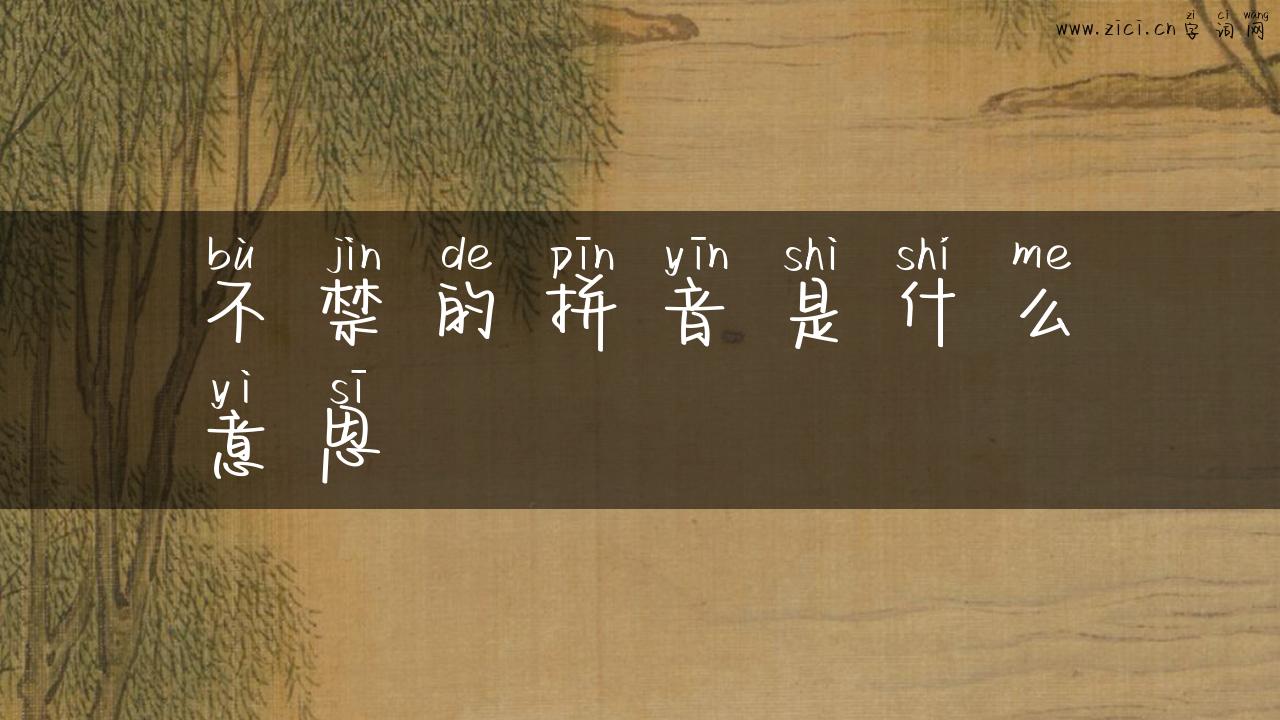 zì cí wǎng
www.zici.cn 字词网
bù jìn de pīn yīn shì shí me
不禁的拼音是什么
yì sī
意思